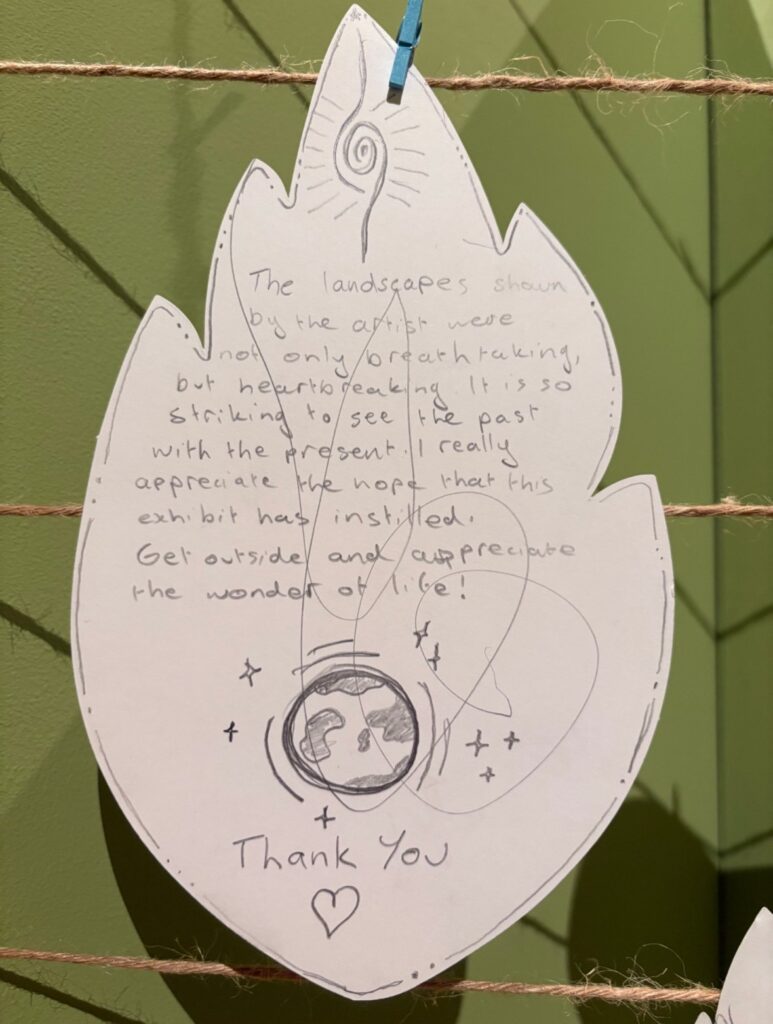 The landscapes shown
by the artist were
not only breathtaking,
but heartbreaking. It is so
striking to see the past
with the present. I really
appreciate the hope that this
exhibit has instilled.
Get outside and appreciate
the wonder of life!
Thank You